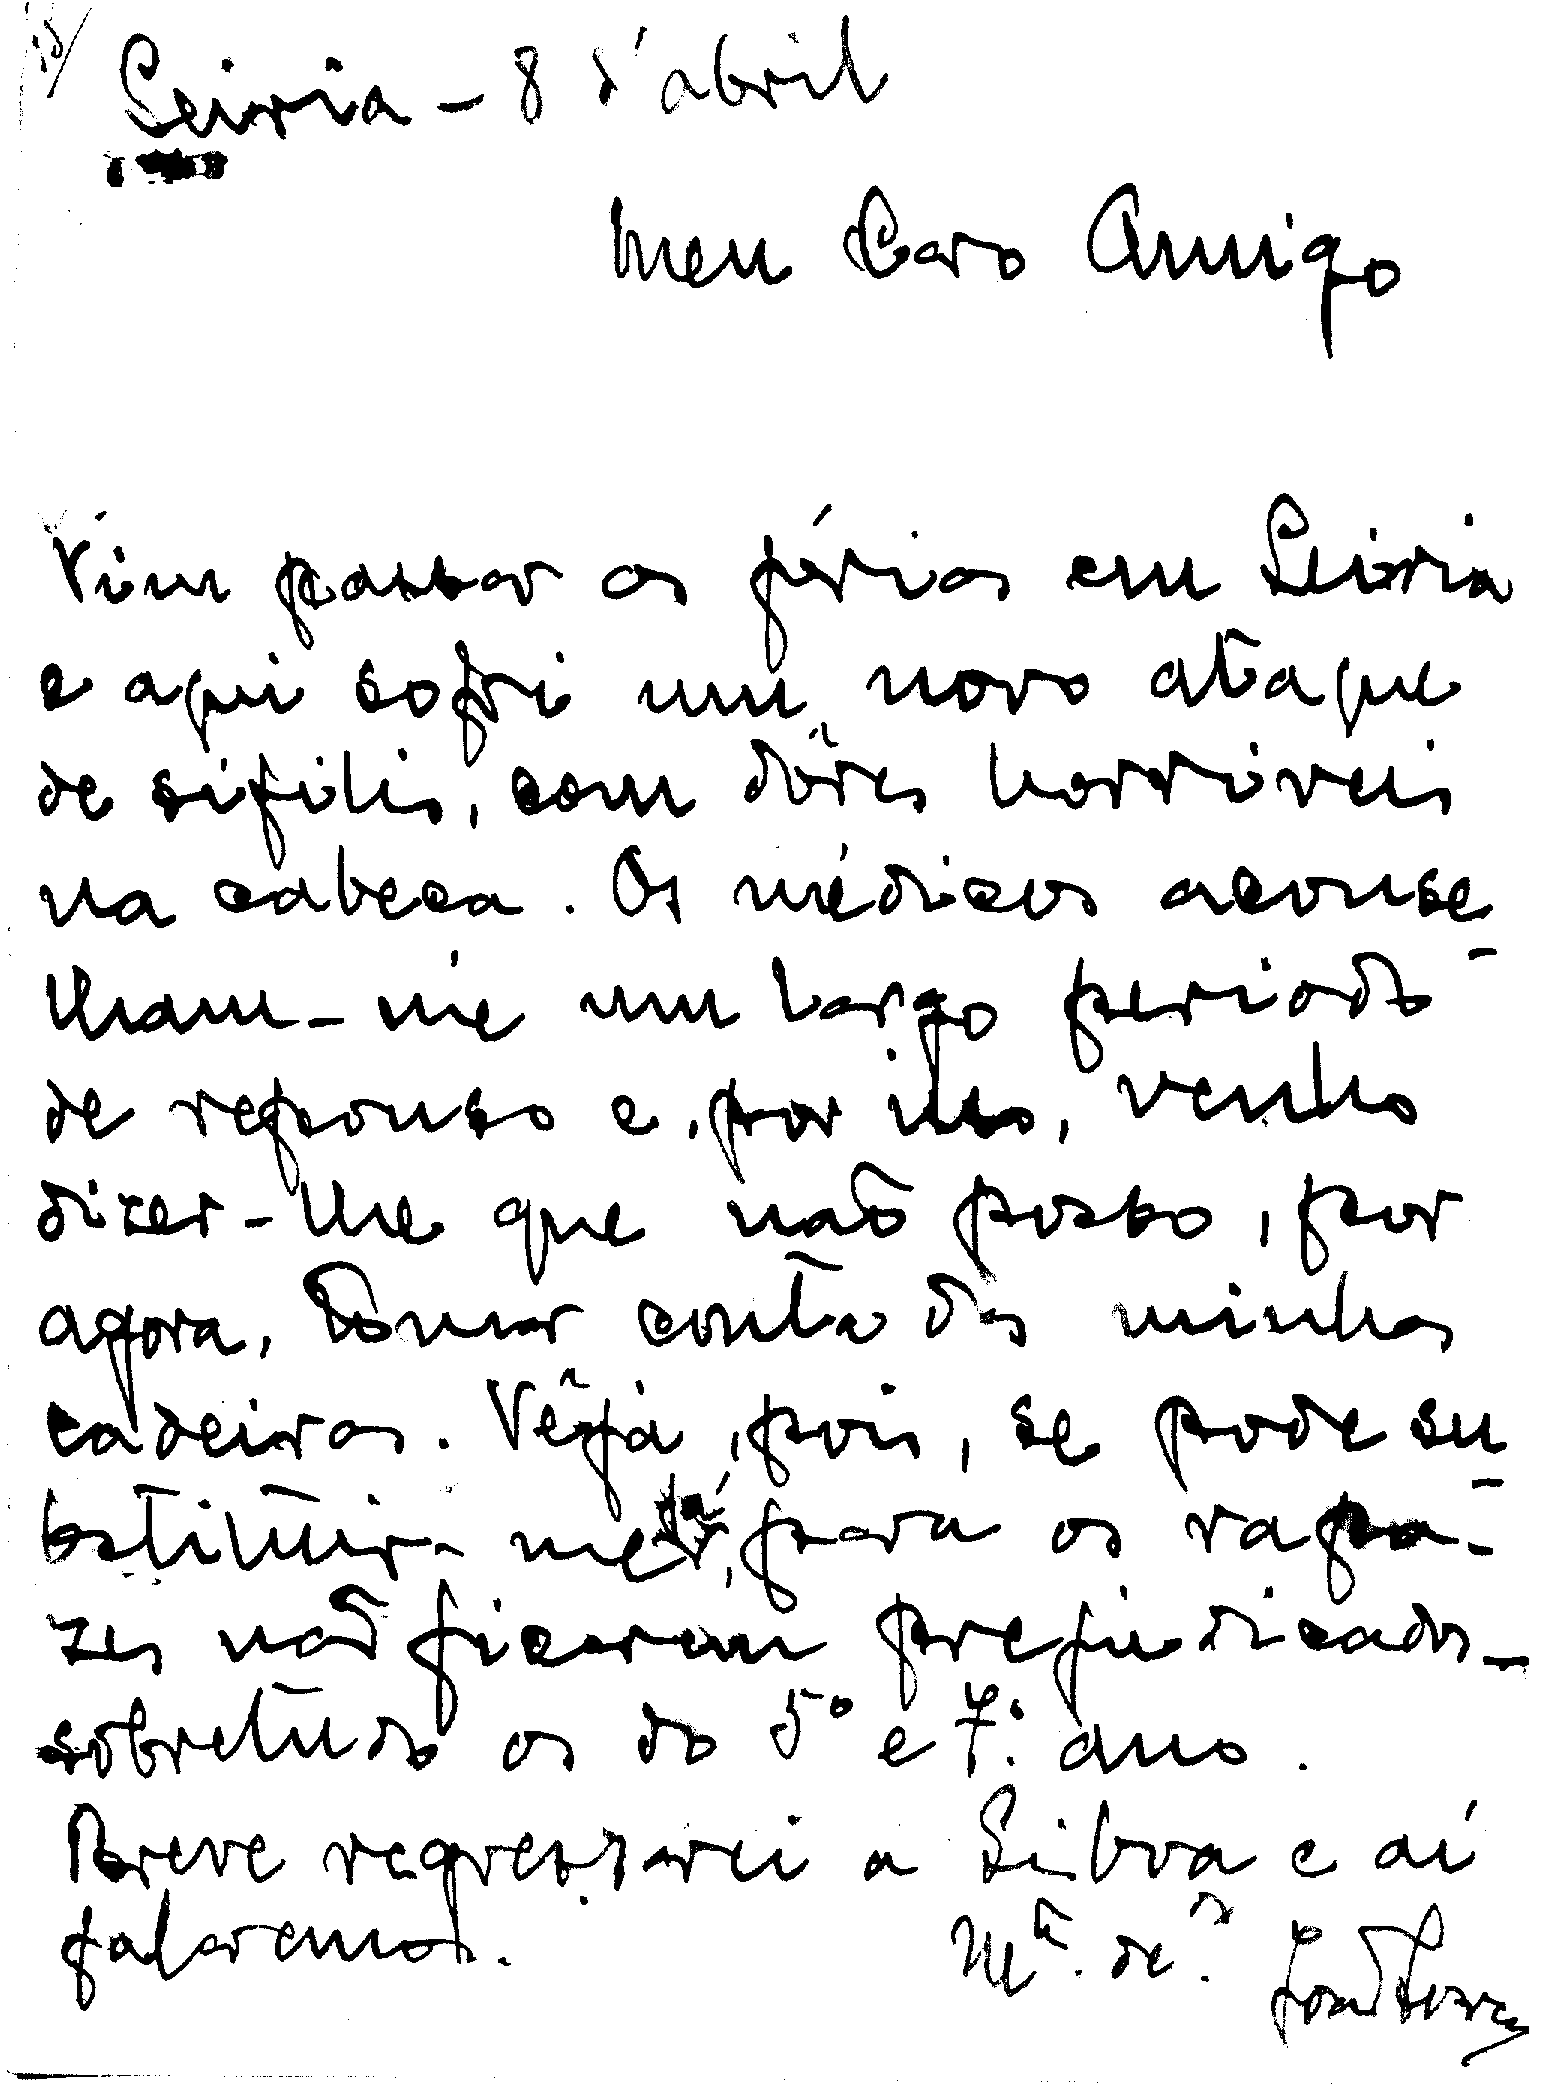 Leiria - 8 d'abril
Meu Caro Amigo
Vim passar as férias em Leiria
e aqui sofri um novo ataque
de sifilis, com dôres horriveis
na cabeca. Os médicos aconse
lham-me um largo periodo
de repouso e, por isso, venho
dizer-lhe que não posso, por
agora, tomar conta das minhas
cadeiras. Vêja, pois, se pode su
bstituir-me, para os rapa-
zes não ficarem prejudicados-
sobretudo os do 5º e 7º ano.
Breve regressarei a Lisboa e aí
falaremos.
Mtº. de.